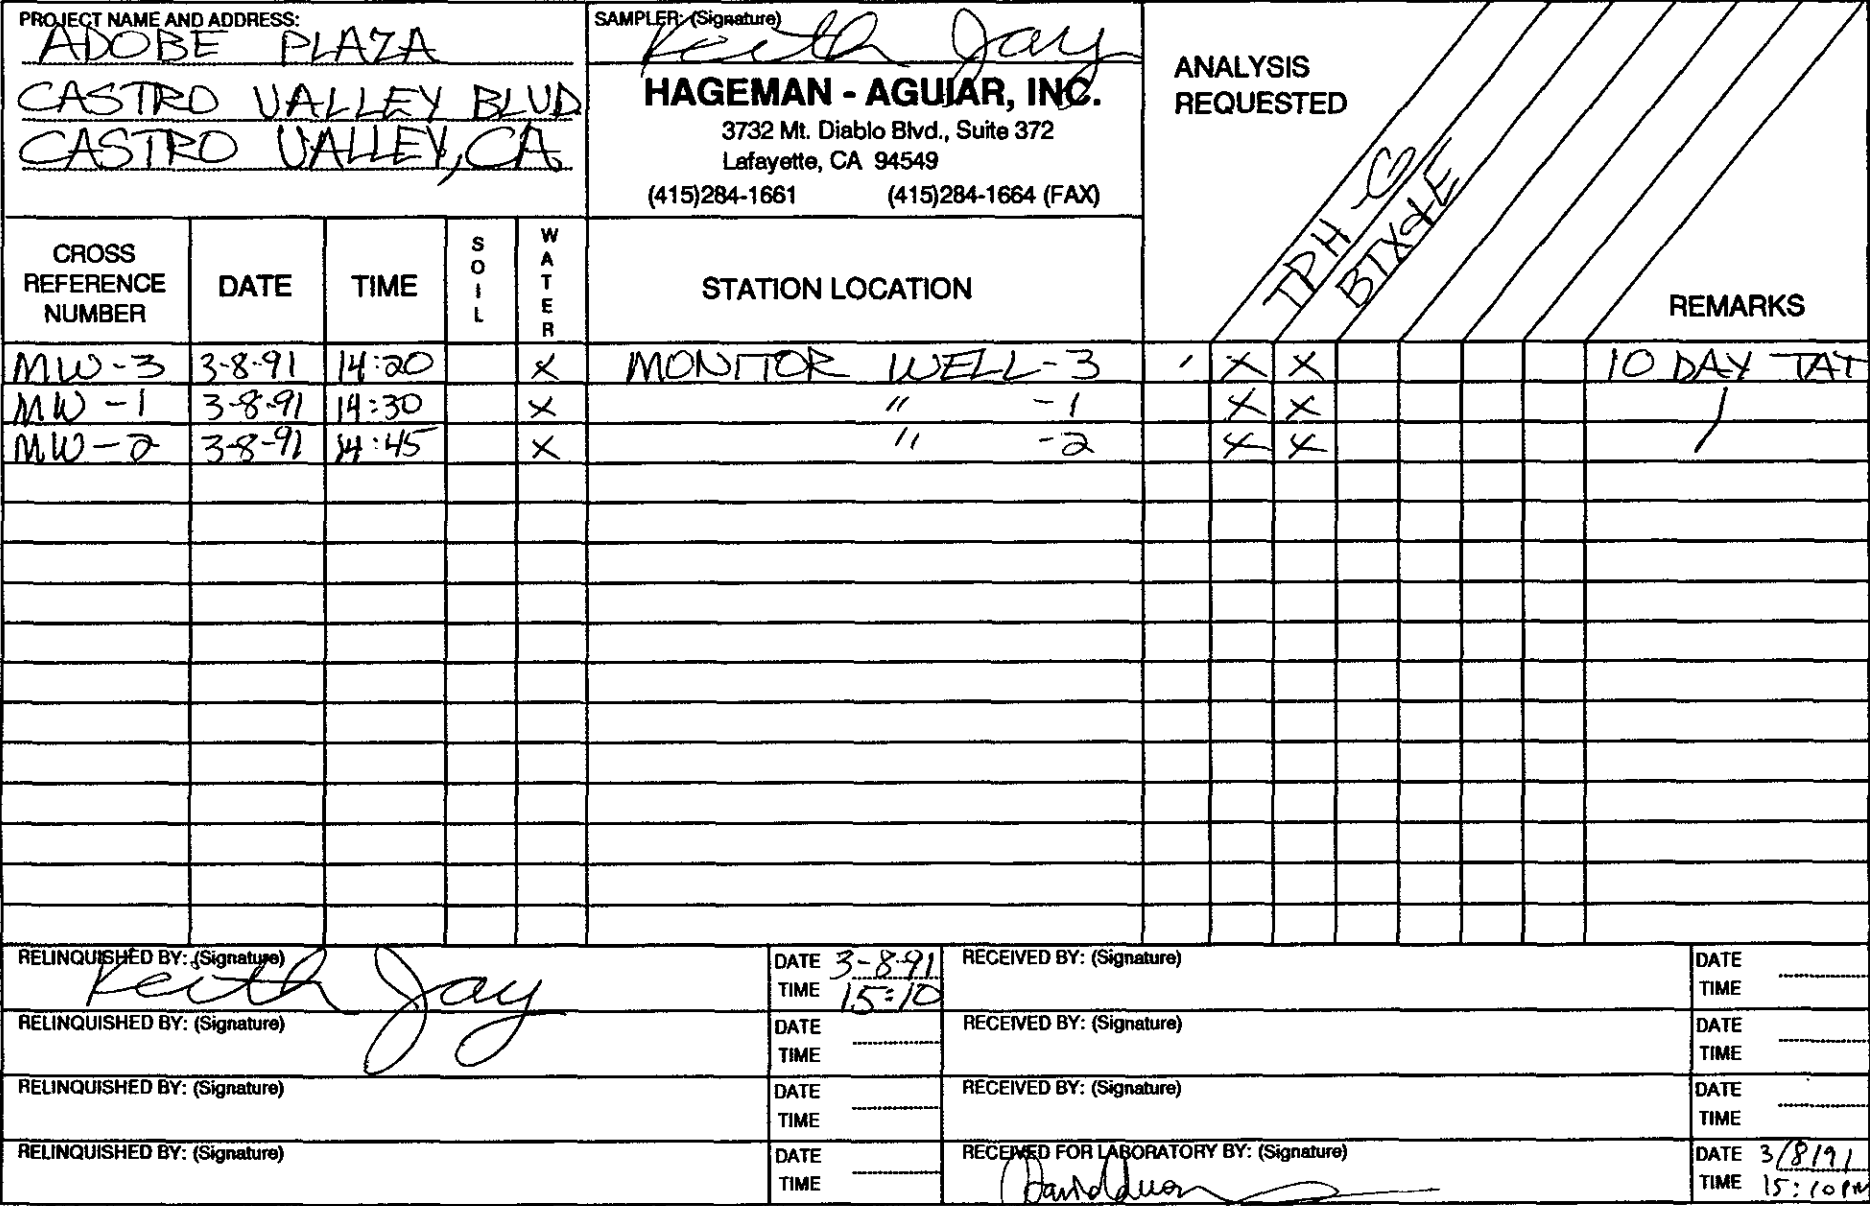 PROJECT NAME AND ADDRESS:
ADOBE PLAZA
CASTRO VALLEY BLVD
CASTRO VALLEY, CA.
SAMPLER: (Signature)
Keith Jay
HAGEMAN - AGUIAR, INC.
3732 Mt. Diablo Blvd., Suite 372
Lafayette, CA 94549
(415)284-1661 (415)284-1664 (FAX)
ANALYSIS
REQUESTED
TPH-G
BTX&E
CROSS
REFERENCE
NUMBER
DATE
TIME
SOIL
WATER
STATION LOCATION
REMARKS
MW-3 3-8-91 14:20 X MONITOR WELL-3 X X 10 DAY TAT
MW-1 3-8-91 14:30 X " -1 X X
MW-2 3-8-91 14:45 X " -2 X X
RELINQUISHED BY: (Signature)
Keith Jay
DATE 3-8-91
TIME 15:10
RECEIVED BY: (Signature)
DATE
TIME
RELINQUISHED BY: (Signature)
DATE
TIME
RECEIVED BY: (Signature)
DATE
TIME
RELINQUISHED BY: (Signature)
DATE
TIME
RECEIVED BY: (Signature)
DATE
TIME
RELINQUISHED BY: (Signature)
DATE
TIME
RECEIVED FOR LABORATORY BY: (Signature)
David
DATE 3/8/91
TIME 15:10PM